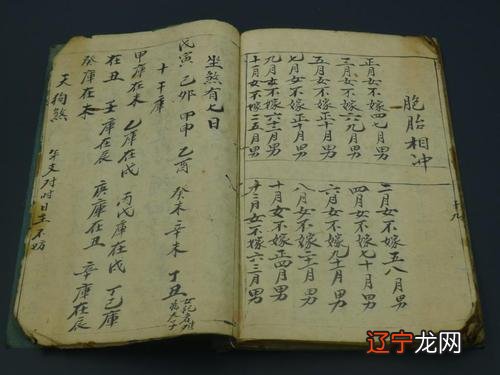 胞胎相冲
正月女不嫁四七月男
三月女不嫁六九月男
五月女不嫁 月男
七月女不嫁正十月男
九月女不嫁 月男
十一月女不嫁二五月男
十九
二月女不嫁五八月男
四月女不嫁七十月男
六月女不嫁九十月男
八月女不嫁 月男
十月女不嫁正四月男
十二月女不嫁六三月男
坐煞有七日
戊寅 乙卯 甲申 乙酉 癸未 辛未 丁丑
十干庫
甲庫在未 乙庫在戌 丙戊庫在戌 丁己庫
在丑 壬庫在辰 庚庫在丑 辛庫在辰
癸庫在未
天狗煞
年支对时日主不妨
辽宁龙网